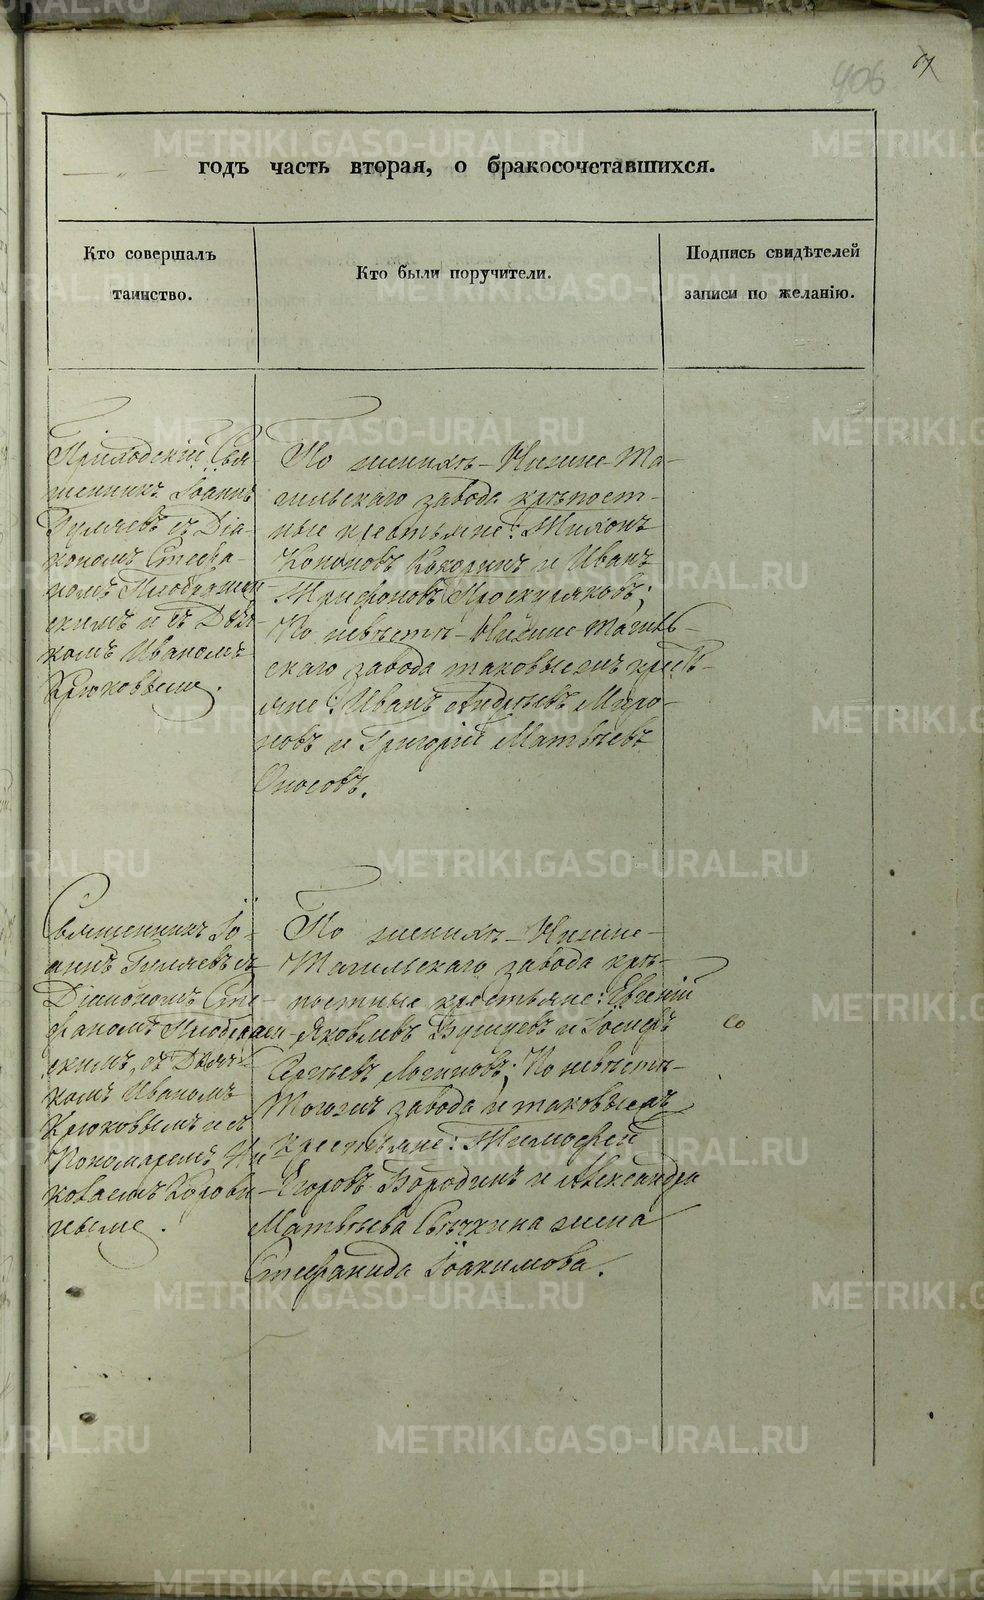 406
67
годъ часть вторая, о бракосочетавшихся.
Кто совершалъ
таинство.
Кто были поручители.
Подпись свидѣтелей
записи по желанію.
Приходскій Свя-
щенникъ Іоаннъ
Гуляевъ съ Діа-
кономъ Стефа-
номъ
скимъ и съ Дьяч-
комъ Иваномъ
Крюковымъ.
По женихѣ - Нижне-Та-
гильскаго завода крѣпост-
ные крестьяне:
Кононовъ Кокоринъ и Иванъ
Трифоновъ Проскуряковъ;
По невѣстѣ - Нижне-Тагиль-
скаго завода таковыежъ крест-
яне: Иванъ Андреевъ Миро-
новъ и Григорій Матвѣевъ
Оносовъ.
Священникъ Іо-
аннъ Гуляевъ съ
Діакономъ Сте-
фаномъ
скимъ, съ Дьяч-
комъ Иваномъ
Крюковымъ и съ
Пономаремъ Ни-
колаемъ
По женихѣ - Нижне-
Тагильскаго завода крѣ-
постные крестьяне: Евгеній
Яковлевъ и Іосифъ
Сергѣевъ Логиновъ; По невѣстѣ-
Тогожъ завода и таковыежъ
крестьяне: Тимофей
Егоровъ Бородинъ и Александра
Матвѣева жена
Стефанида Іоакимова.
METRIKI.GASO-URAL.RU